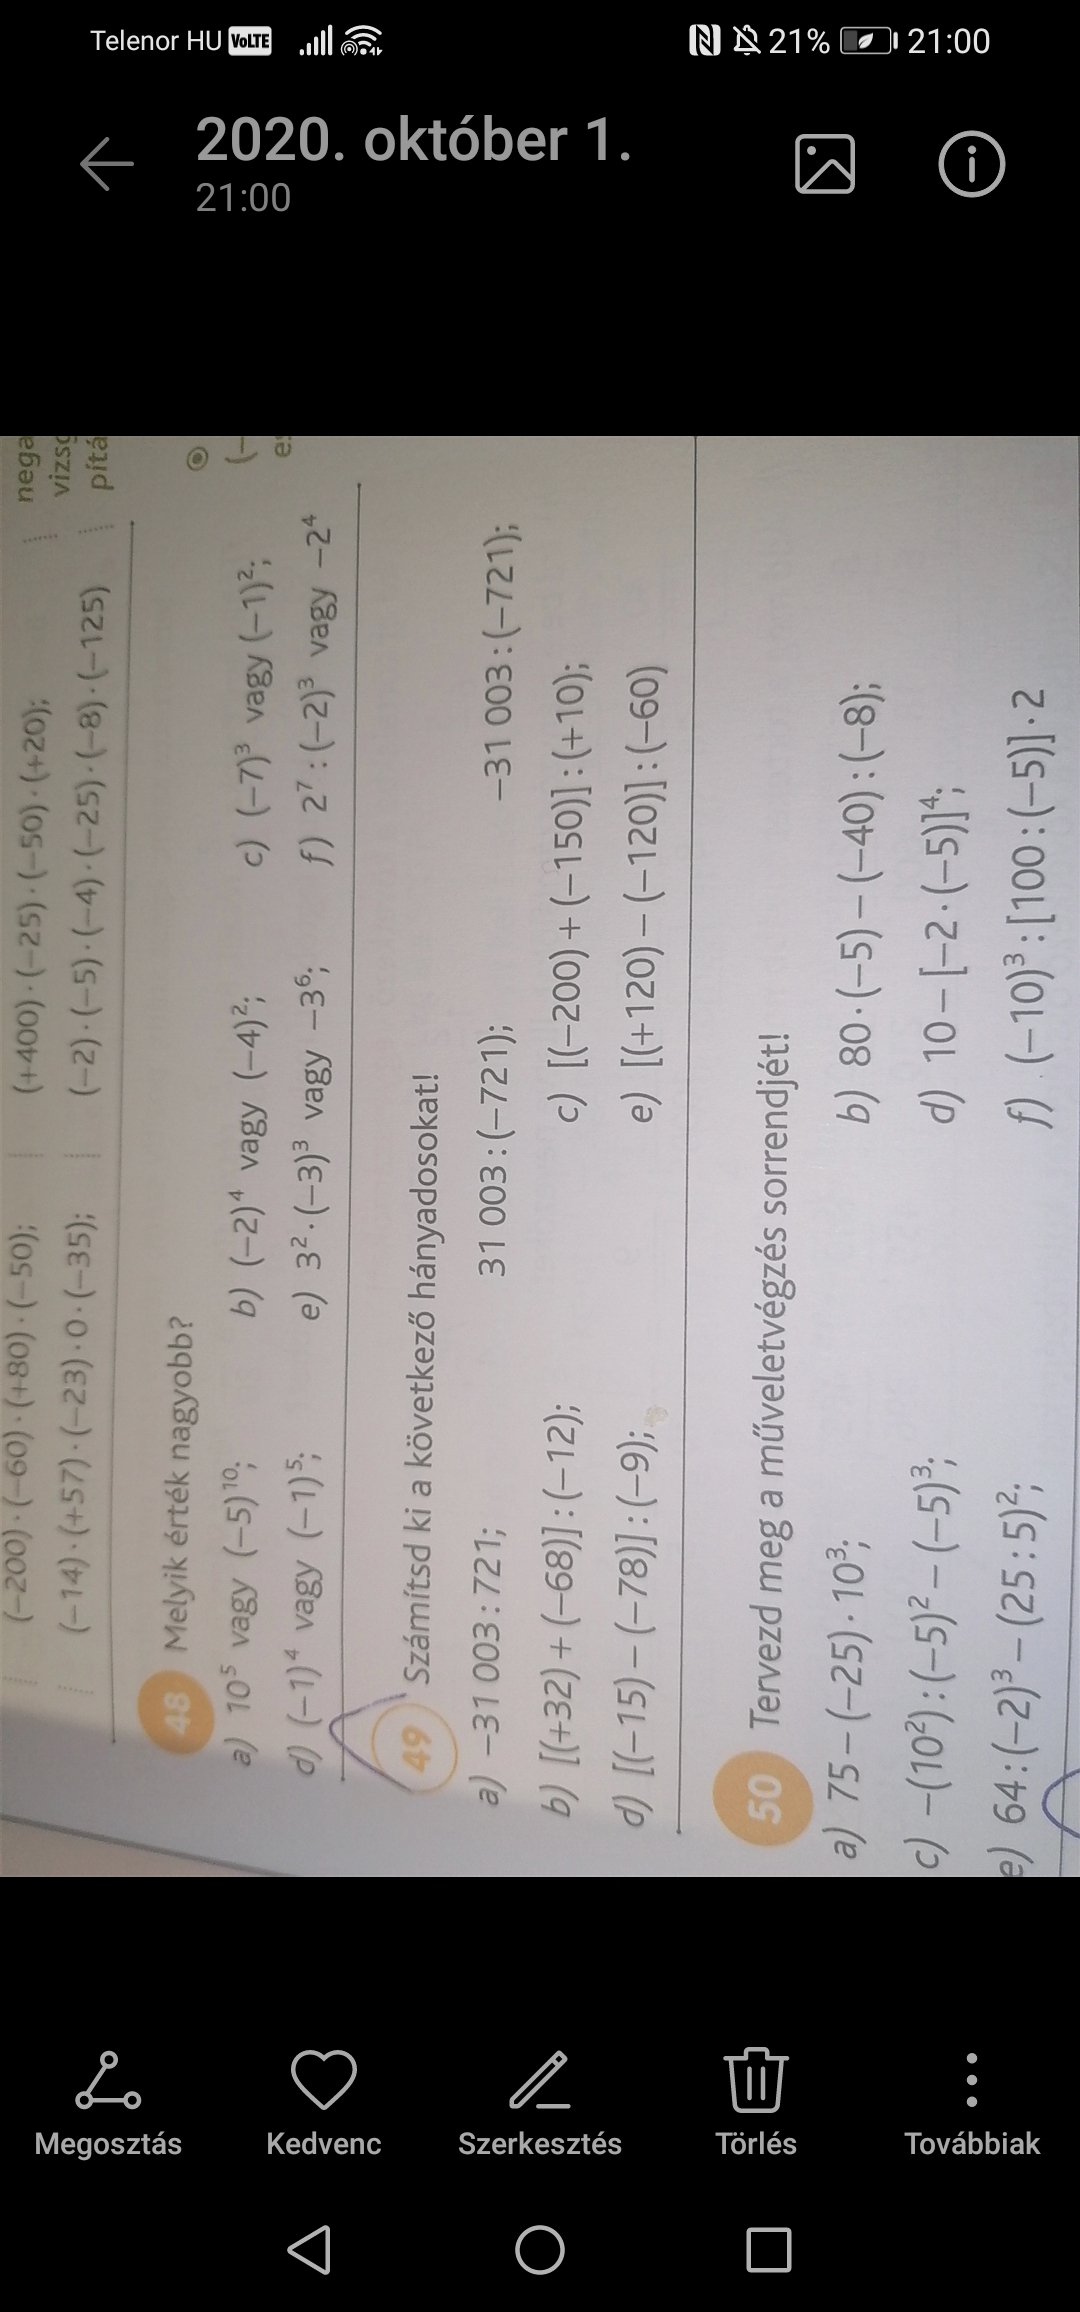 Telenor HU VoLTE 21% 21:00
2020. október 1.
21:00
(−200)·(−60)·(+80)·(−50); (+400)·(−25)·(−50)·(+20); nega
(−14)·(+57)·(−23)·0·(−35); (−2)·(−5)·(−4)·(−25)·(−8)·(−125) vizsg
pítá
48 Melyik érték nagyobb?
a) 10⁵ vagy (−5)¹⁰; b) (−2)⁴ vagy (−4)²; c) (−7)³ vagy (−1)²; (−
d) (−1)⁴ vagy (−1)⁵; e) 3²·(−3)³ vagy −3⁶; f) 2⁷:(−2)³ vagy −2⁴
49 Számítsd ki a következő hányadosokat!
a) −31 003:721; 31 003:(−721); −31 003:(−721);
b) [(+32)+(−68)]:(−12); c) [(−200)+(−150)]:(+10);
d) [(−15)−(−78)]:(−9); e) [(+120)−(−120)]:(−60)
50 Tervezd meg a műveletvégzés sorrendjét!
a) 75−(−25)·10³; b) 80·(−5)−(−40):(−8);
c) −(10²):(−5)²−(−5)³; d) 10−[−2·(−5)]⁴;
e) 64:(−2)³−(25:5)²; f) (−10)³:[100:(−5)]·2
Megosztás Kedvenc Szerkesztés Törlés Továbbiak